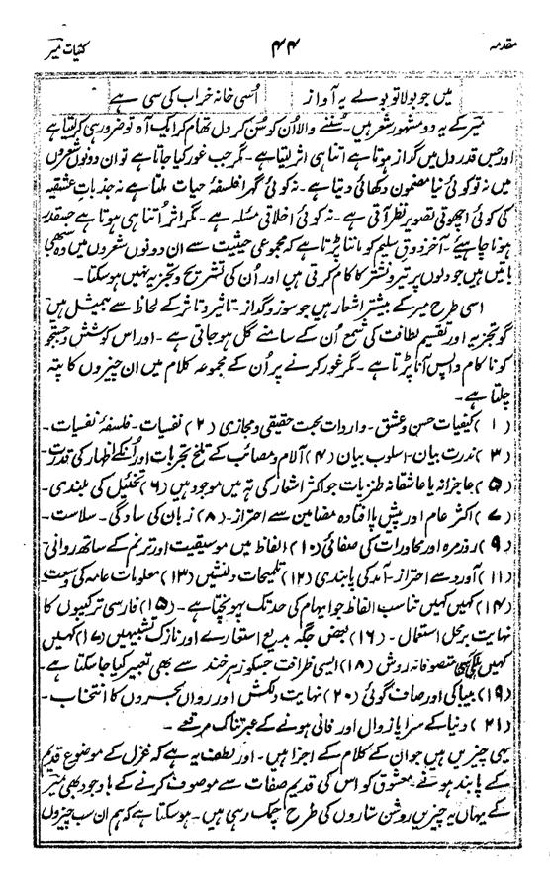 مقدمہ ۴۴ کلیات میر
میں جو بولا تو بولے یہ آواز اُسی خانہ خراب کی سی ہے
میر کے یہ دو مشہور شعر ہیں۔ سُننے والا ان کو سُن کر دل تھام کر ایک آہ تو ضرور ہی کر لیتا ہے
اور جس قدر دل میں گداز ہوتا ہے اتنا ہی اثر لیتا ہے۔ مگر جب غور کیا جاتا ہے تو ان دونوں شعروں
میں نہ تو کوئی نیا مضمون دکھائی دیتا ہے۔ نہ کوئی گہرا فلسفۂ حیات ملتا ہے نہ جذبات عشقیہ
کی کوئی اچھوتی تصویر نظر آتی ہے۔ نہ کوئی اخلاقی مسئلہ ہے۔ مگر اثر اُتنا ہی ہوتا ہے جسقدر
ہونا چاہیئے۔ آخر ذوق سلیم کو ماننا پڑتا ہے کہ مجموعی حیثیت سے ان دونوں شعروں میں وہ سبھی
باتیں ہیں جو دلوں پر تیر و نشتر کا کام کرتی ہیں اور اُن کی تشریح و تجزیہ نہیں ہو سکتا۔
اسی طرح میر کے بیشتر اشعار ہیں جو سوز و گداز۔ تاثیر و تاثر کے لحاظ سے بیمثل ہیں
گو تجزیہ اور تقسیم لطافت کی شمع اُن کے سامنے گل ہو جاتی ہے۔ اور اس کوشش و جستجو
کو ناکام واپس آنا پڑتا ہے۔ مگر غور کرنے پر اُن کے مجموعہ کلام میں ان چیزوں کا پتہ
چلتا ہے۔
(۱) کیفیات حسن و عشق۔ واردات محبت حقیقی و مجازی (۲) نفسیات۔ فلسفۂ نفسیات۔
(۳) ندرت بیان۔ اسلوب بیان (۴) آلام و مصائب کے تلخ تجربات اور اُنکے اظہار کی قدرت۔
(۵) عاجزانہ یا عاشقانہ طنزیات جو اکثر اشعار کی تہ میں موجود ہیں (۶) تخئیل کی بلندی۔
(۷) اکثر عام اور پیش پا افتادہ مضامین سے احتراز۔ (۸) زبان کی سادگی۔ سلاست۔
(۹) روزمرہ اور محاورات کی صفائی (۱۰) الفاظ میں موسیقیت اور ترنم کے ساتھ روانی
(۱۱) آورد سے احتراز۔ آمد کی پابندی (۱۲) تلمیحات دلنشیں (۱۳) معلومات عامہ کی وسعت
(۱۴) کہیں کہیں تناسب الفاظ جو ایہام کی حد تک پہونچتا ہے۔ (۱۵) فارسی ترکیبوں کا
نہایت بر محل استعمال۔ (۱۶) بعض جگہ بدیع استعارے اور نازک تشبیہیں (۱۷) کہیں
کہیں ہلکی سی متصوفانہ روش (۱۸) ایسی ظرافت جسکو زہر خند سے بھی تعبیر کیا جا سکتا ہے۔
(۱۹) بیباکی اور صاف گوئی (۲۰) نہایت دلکش اور رواں بحروں کا انتخاب۔
(۲۱) دنیا کے سراپا زوال اور فانی ہونے کے عبرتناک مرقعے۔
یہی چیزیں ہیں جو ان کے کلام کے اجزا ہیں۔ اور لطف یہ ہے کہ غزل کے موضوع قدیم
کے پابند ہوتے معشوق کو اس کی قدیم صفات سے موصوف کرنے کے باوجود بھی میر
کے یہاں یہ چیزیں روشن ستاروں کی طرح چمک رہی ہیں۔ ہو سکتا ہے کہ ہم ان سب چیزوں